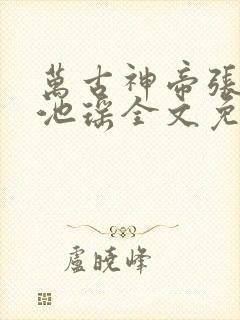 萬古神帝張
池瑤全文免
盧曉峰